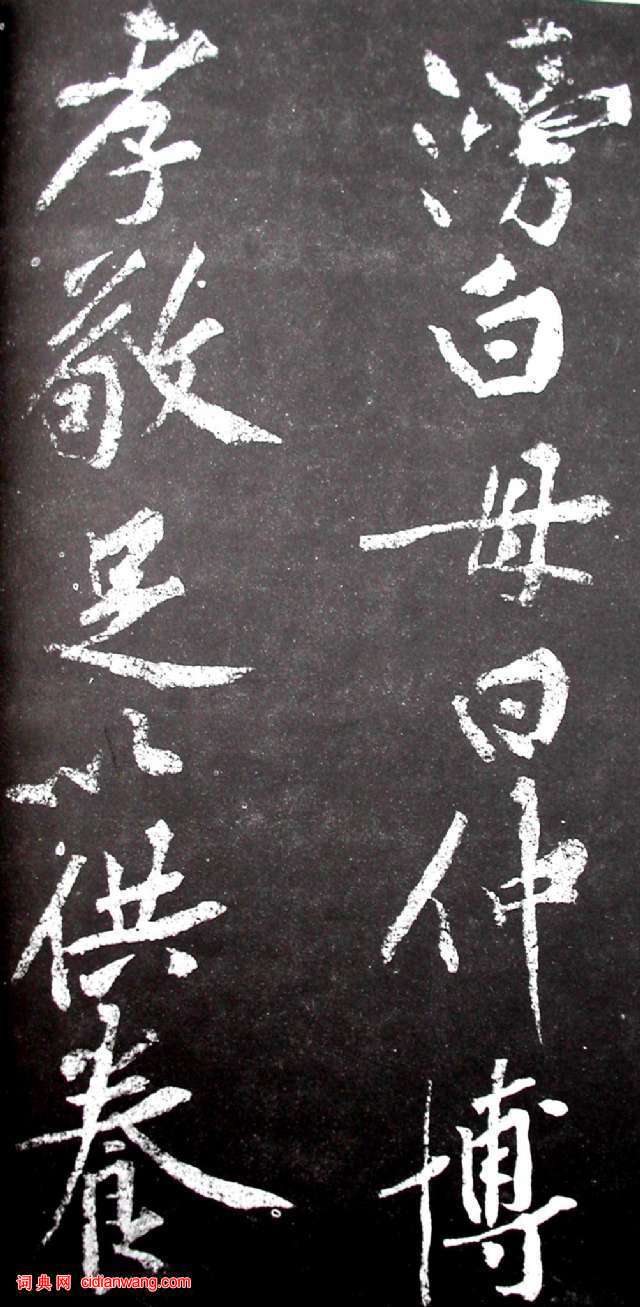 滂白母曰仲博
孝敬足以供養
词典网 cidianwang.com